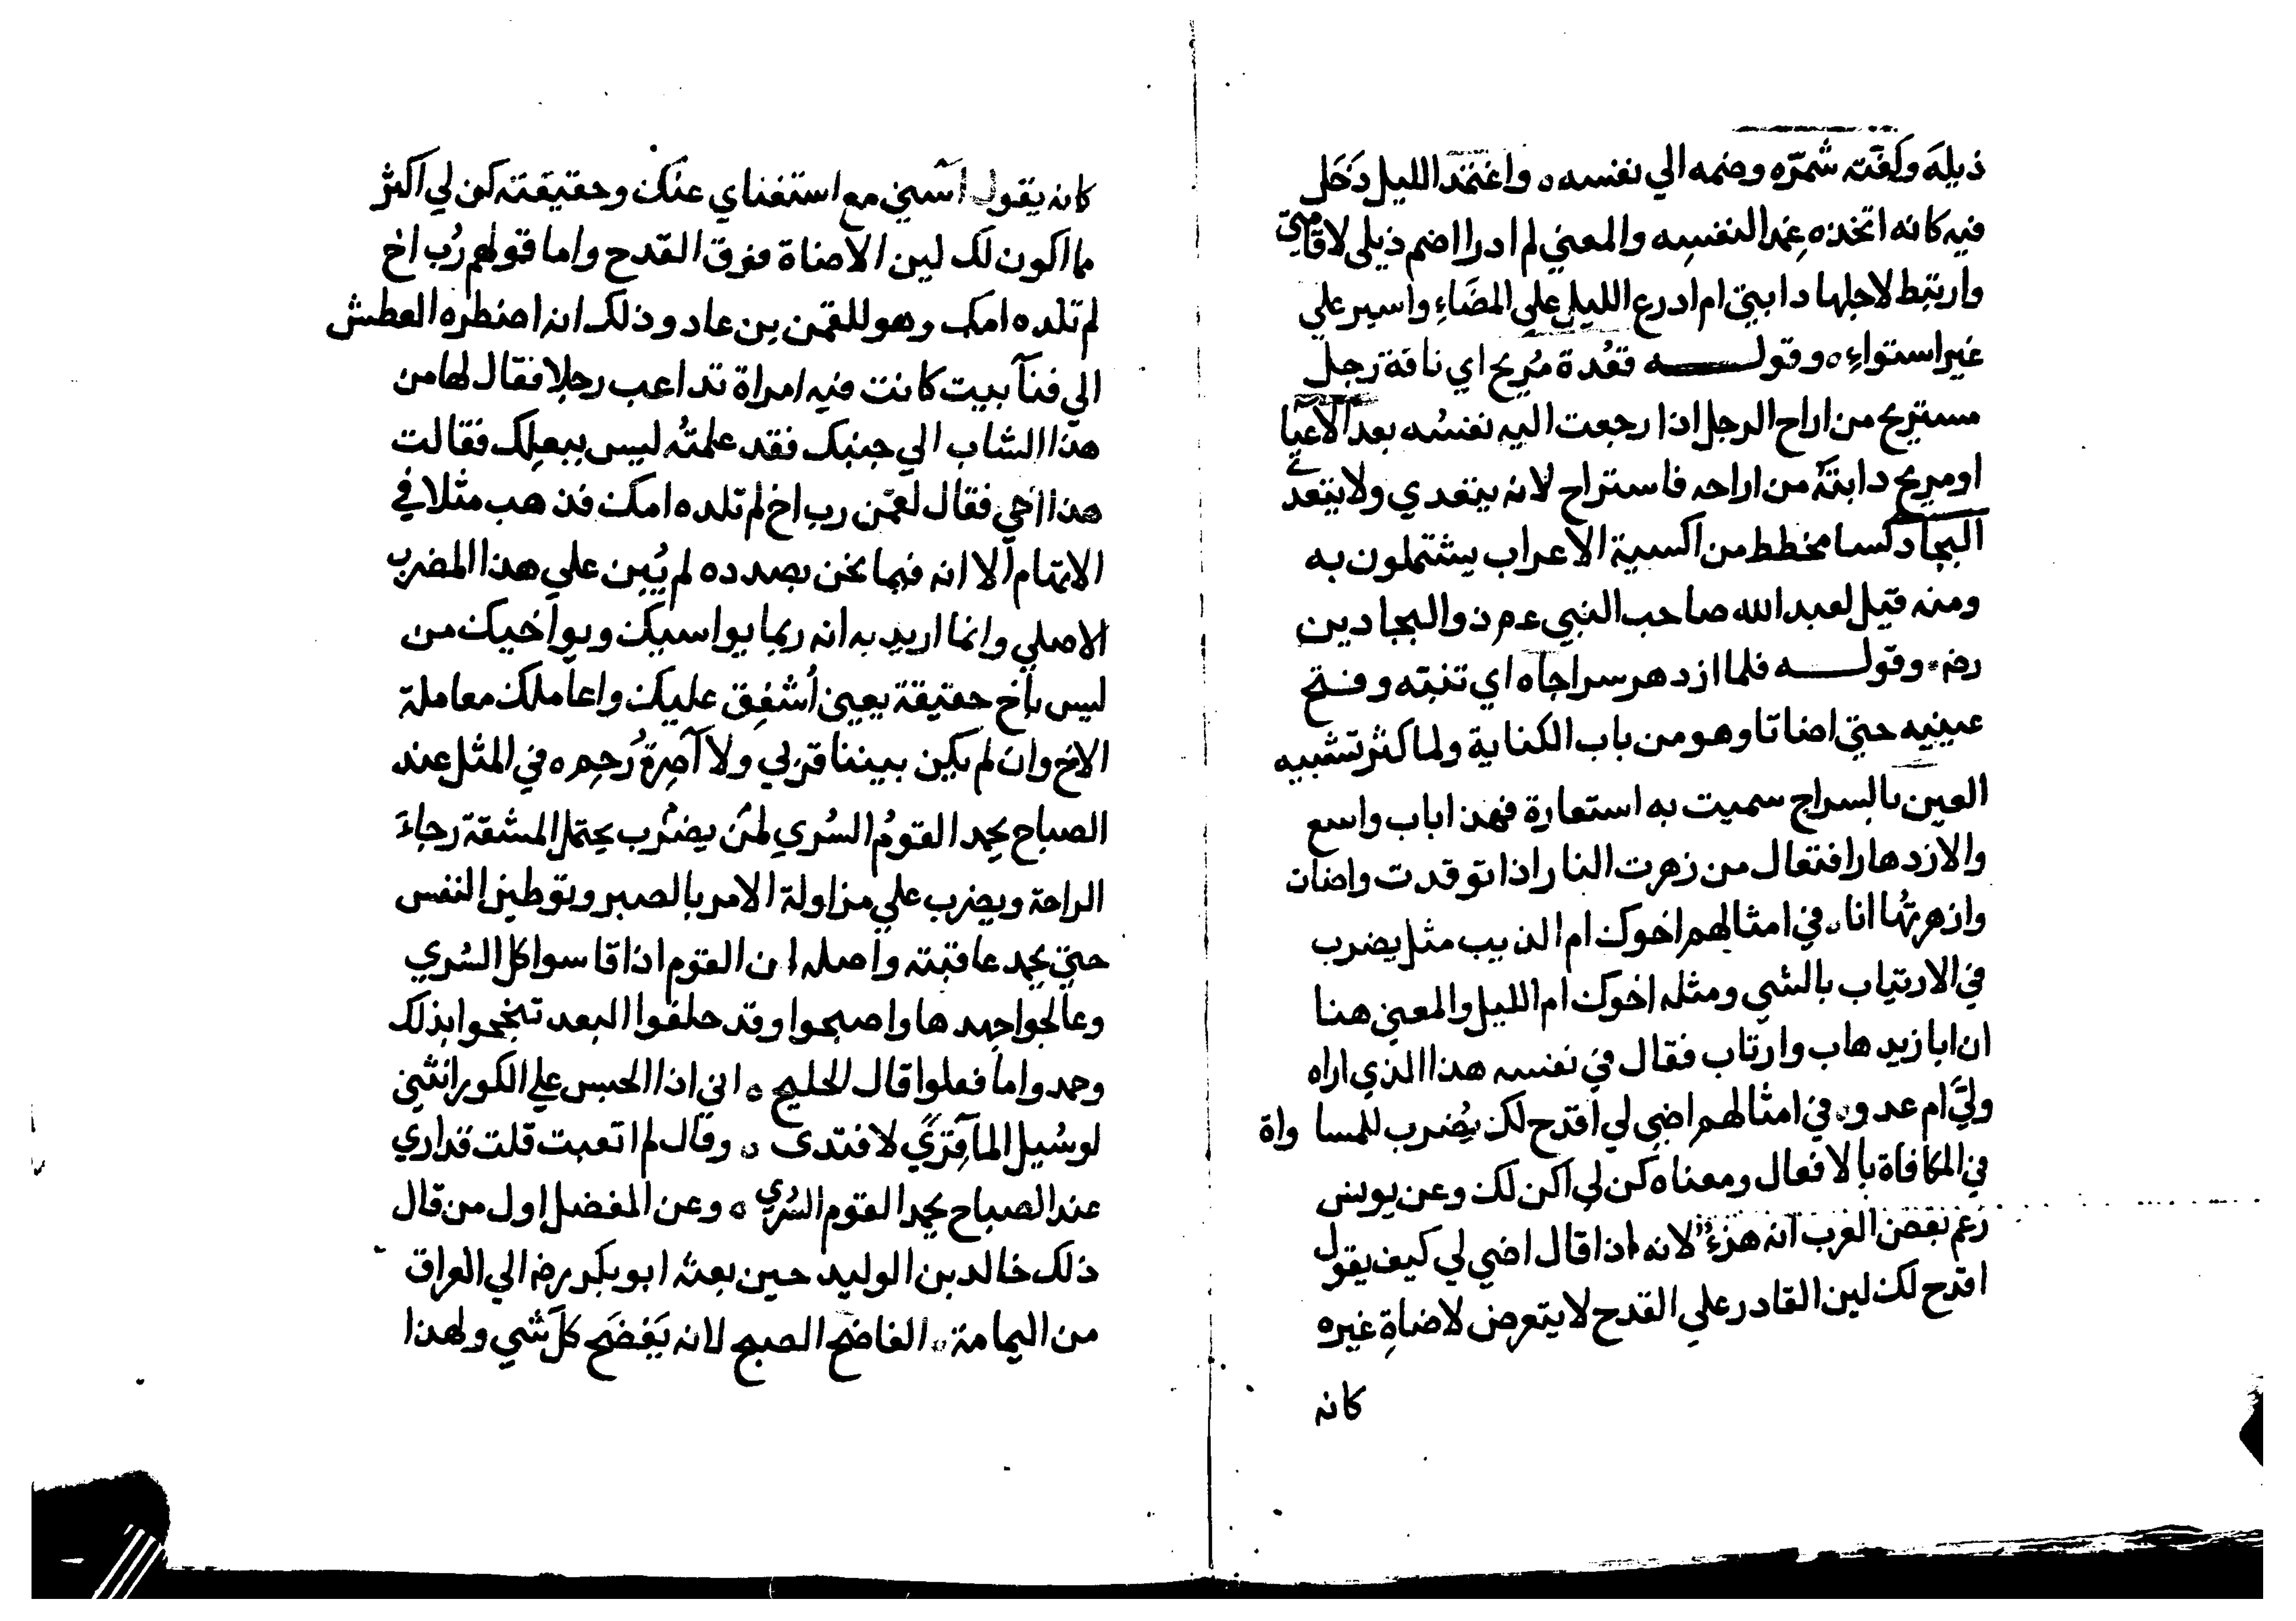 ذيله وكفته شمّره وضمه الي نفسه ه واغتمد الليل دَخَل
فيه كانه اتخذه غمدا لنفسِه والمعني لم ادر ااضم ذيلى لاقامتي
وارتبط لاجلها دابتي ام ادرع الليل علي المضَاءِ واسير علي
غير استواءٍ ه وقولـــه قعُدة مُريح اي ناقة رَجل
مستريح من اراح الرجل اذا رجعت اليه نفسُه بعد الاعيا
او مريح دابتَهُ من اراحه فاستراح لانه يتعدي ولا يتعدي
البجاد كسا مخطط من اكسية الاعراب يشتملون به
ومنه قيل لعبد الله صاحب النبي عم ذو البجادين
رضه وقولـــه فلما ازدهر سراجاه اي تنبّه وفـتح
عينيه حتي اضاتا وهو من باب الكناية ولما كثر تشبيه
العين بالسراج سميت به استعارة فهذا باب واسع
والازدهار افتعال من زهرت النار اذا توقدت واضات
وازهرتُها انا ه في امثالهم اخوك ام الذيب مثل يضرب
في الارتياب بالشي ومثله اخوك ام الليل والمعني هنا
ان ابا زيد هاب وارتاب فقال في نفسه هذا الذي اراه
وليٌّ ام عدو ه في امثالهم اضي لي اقدح لك يُضرب للمساواة
في المكافاة بالافعال ومعناه كن لي اكن لك وعن يونس
زعم بعض العرب انه هزءٌ لانه اذا قال اضي لي كيف يقول
اقدح لك لين القادر علي القدح لا يتعرض لاضاةِ غيره
كانه
كانه يقول آسني مع استغناي عنك وحقيقته كن لي اكثر
ما اكون لك لين الاضاة فوق القدح واما قولهم رُب اخ
لم تلده امك وهو للقمن بن عاد وذلك انه اضطره العطش
الي فنآ بيت كانت فيه امراة تداعب رجلا فقال لها من
هذا الشاب الي جنبك فقد علمتُه ليس ببعلِك فقالت
هذا اخي فقال لقمن رب اخ لم تلده امك فذهب مثلا في
الاتهام الا انه فيما نحن بصدده لم يُبن علي هذا المضرب
الاصلي وانما اريد به انه ربما يواسيك ويواخيك من
ليس باخ حقيقة يعني أُشفِق عليك واعاملك معاملة
الاخ وان لم يكن بيننا قربي ولا آصِرةُ رَحِم ه في المثل عند
الصباح يحمد القومُ السُري لمن يضرب يحتمل المشقة رجاءَ
الراحة ويضرب علي مزاولة الامر بالصبر وتوطين النفس
حتي يحمد عاقبته واصله ان القوم اذا قاسوا كل السُري
وعالجوا جهدها واصبحوا وقد خلفوا البعد تبجحوا بذلك
وحمدوا ما فعلوا قال الخليج ه اني اذا الحبس علي الكور انثني
لو سُيل الما فِدًي لافتدى ه وقال لم اتعبت قلت قداري
عند الصباح يحمد القوم السُري ه وعن المفضل اول من قال
ذلك خالد بن الوليد حين بعثه ابو بكر رضه الي العراق
من اليمامة ه الفاضح الصبح لانه يَفضَح كل شي ولهذا